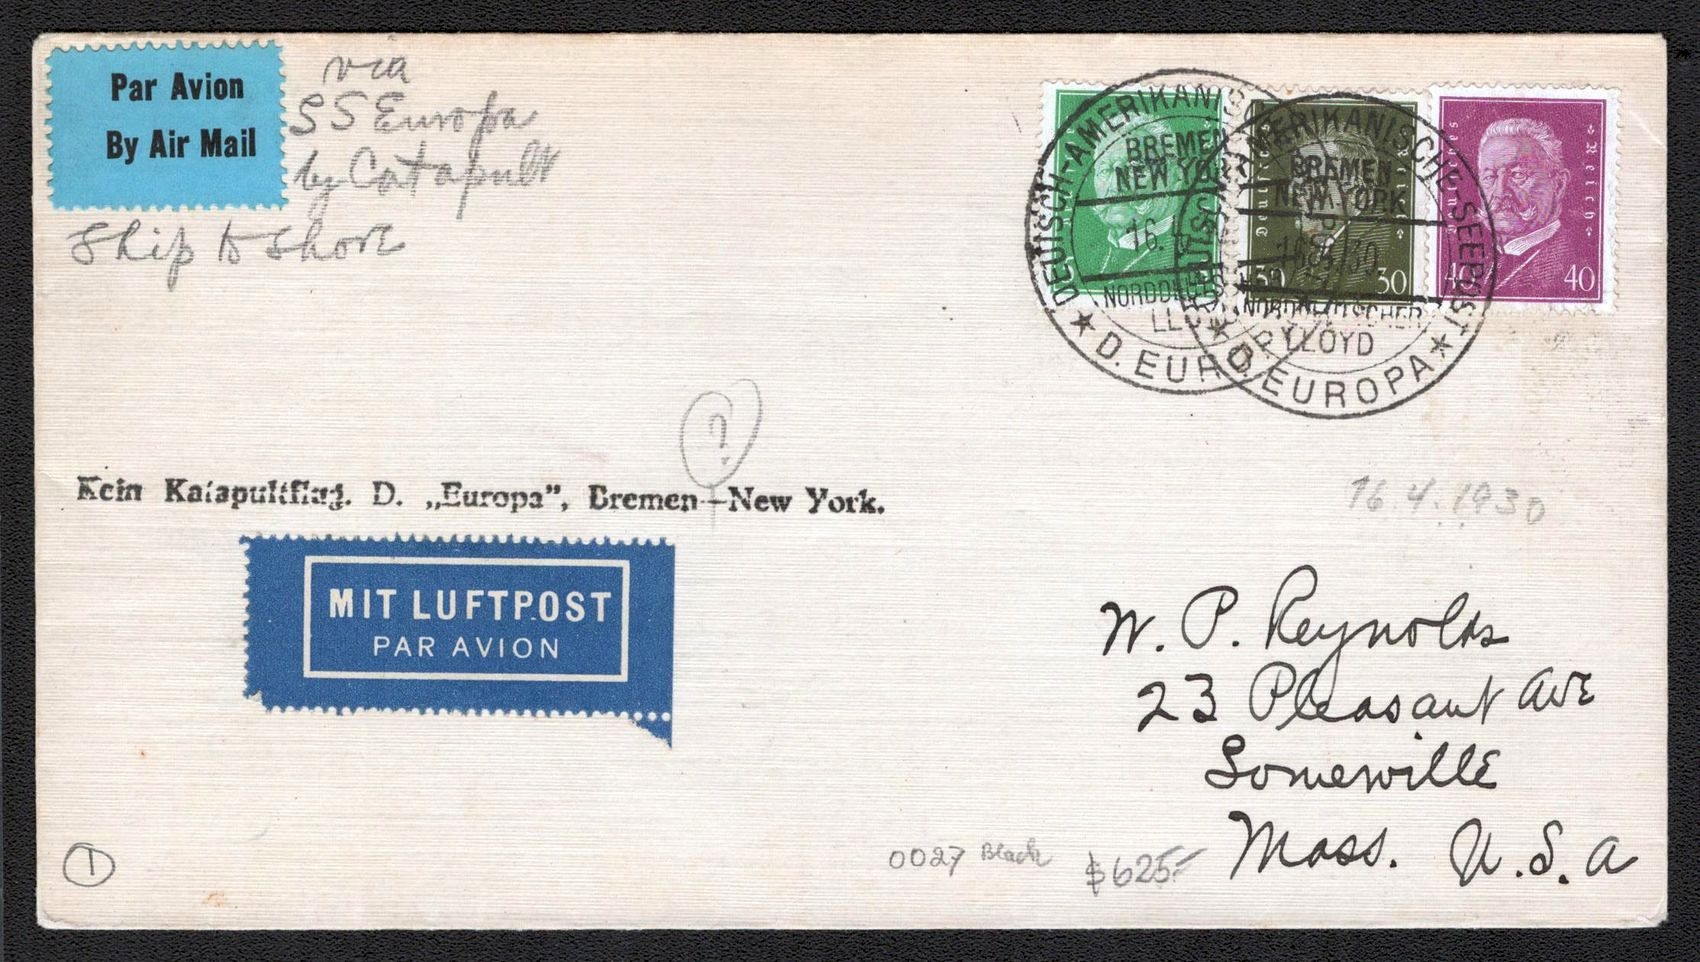 Par Avion
By Air Mail
via
SS Europa
by Catapult
Ship to shore
DEUTSCH-AMERIKANISCHE SEEPOST
BREMEN
NEW YORK
16.
NORDDEUTSCHER
LLOYD
★ D. EUROPA ★
DEUTSCH-AMERIKANISCHE SEEPOST
BREMEN
NEW YORK
NORDDEUTSCHER
LLOYD
★ D. EUROPA ★
Deutsches Reich
30 30
Deutsches Reich
40 40
?
Kein Katapultflug. D. „Europa”, Bremen—New York.
16.4.1930
MIT LUFTPOST
PAR AVION
W. P. Reynolds
23 Pleasant Ave
Somerville
Mass. U.S.A
1
0027 Black
$625-